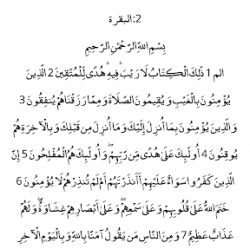 2:البقرة
بِسْمِ اللَّهِ الرَّحْمَٰنِ الرَّحِيمِ
الم 1 ذَٰلِكَ الْكِتَابُ لَا رَيْبَ ۛ فِيهِ ۛ هُدًى لِلْمُتَّقِينَ 2 الَّذِينَ
يُؤْمِنُونَ بِالْغَيْبِ وَيُقِيمُونَ الصَّلَاةَ وَمِمَّا رَزَقْنَاهُمْ يُنْفِقُونَ 3
وَالَّذِينَ يُؤْمِنُونَ بِمَا أُنْزِلَ إِلَيْكَ وَمَا أُنْزِلَ مِنْ قَبْلِكَ وَبِالْآخِرَةِ هُمْ
يُوقِنُونَ 4 أُولَٰئِكَ عَلَىٰ هُدًى مِنْ رَبِّهِمْ ۖ وَأُولَٰئِكَ هُمُ الْمُفْلِحُونَ 5 إِنَّ
الَّذِينَ كَفَرُوا سَوَاءٌ عَلَيْهِمْ أَأَنْذَرْتَهُمْ أَمْ لَمْ تُنْذِرْهُمْ لَا يُؤْمِنُونَ 6
خَتَمَ اللَّهُ عَلَىٰ قُلُوبِهِمْ وَعَلَىٰ سَمْعِهِمْ ۖ وَعَلَىٰ أَبْصَارِهِمْ غِشَاوَةٌ ۖ وَلَهُمْ
عَذَابٌ عَظِيمٌ 7 وَمِنَ النَّاسِ مَنْ يَقُولُ آمَنَّا بِاللَّهِ وَبِالْيَوْمِ الْآخِرِ